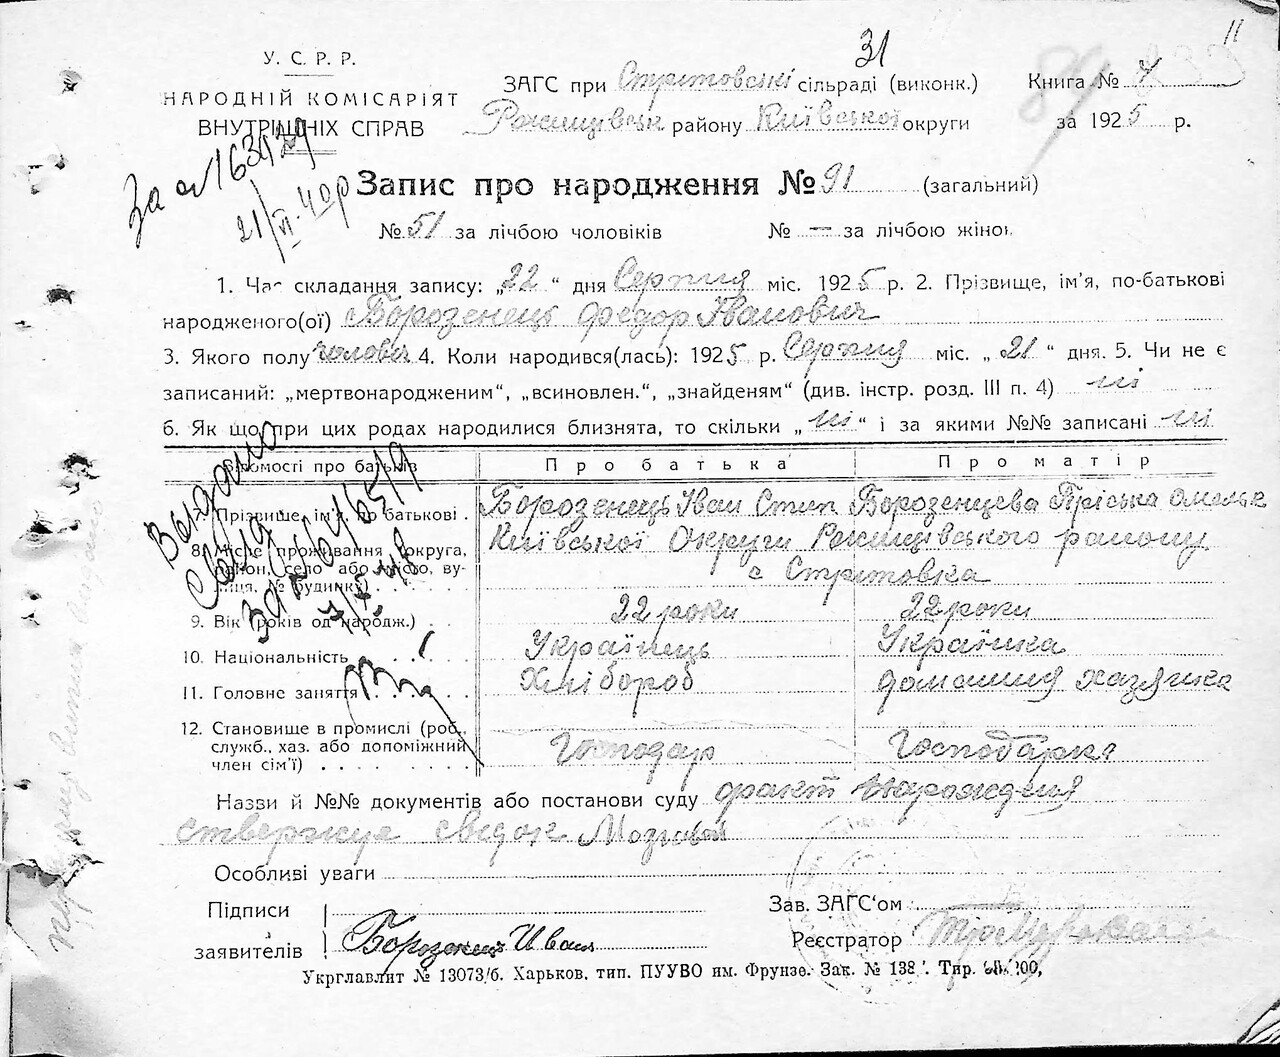 11
31
У. С. Р. Р.
НАРОДНІЙ КОМІСАРІЯТ
ВНУТРІШНІХ СПРАВ
ЗАГС при Стритовські сільраді (виконк.)
району Київської округи
Книга № 4
за 1925 р.
Запис про народження № 91 (загальний)
№ 51 за лічбою чоловіків № — за лічбою жінок
За а№163479
21/VI-40р
1. Час складання запису: „22“ дня Серпня міс. 1925 р. 2. Прізвище, ім'я, по-батькові
народженого(ої) Борозенець Федор Іванович
3. Якого полу чоловіч 4. Коли народився(лась): 1925 р. Серпня міс. „21“ дня. 5. Чи не є
записаний: „мертвонародженим“, „всиновлен.“, „знайденям“ (див. інстр. розд. III п. 4) ні
6. Як що при цих родах народилися близнята, то скільки „ні“ і за якими №№ записані ні
Відомості про батьків Про батька Про матір
7. Прізвище, ім'я, по батькові . Борозенець Іван Степ Борозенцева Пріська Омельк
8. Місце проживання (округа, район, село або місто, вулиця, № будинку) Київської Округи району
с Стритовка
9. Вік (років од народж.) 22 роки 22 роки
10. Національність Українець Українка
11. Головне заняття Хлібороб домашня хазяйка
12. Становище в промислі (роб.,
служб., хаз. або допоміжний
член сім'ї) Господар Господарка
Видано
Назви й №№ документів або постанови суду факт нарождения
ствержує сведок
Особливі уваги
Підписи
заявителів Борозенець Иван
Зав. ЗАГС'ом
Реєстратор
Укрглавлит № 13073/б. Харьков, тип. ПУУВО им. Фрунзе. Зак. № 138 Тир.